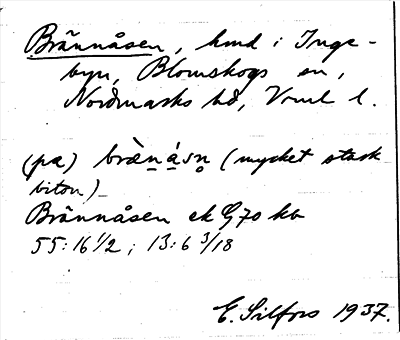 Brännåsen, hmd i Inge-
byn, Blomskogs sn,
Nordmarks hd, Vrml l.
(pa) brän̲á̲sn̥ (mycket stark
biton)
Brännåsen ek G70 kb
55:16 1/2 ; 13:6 3/18
E. Silfors 1937.